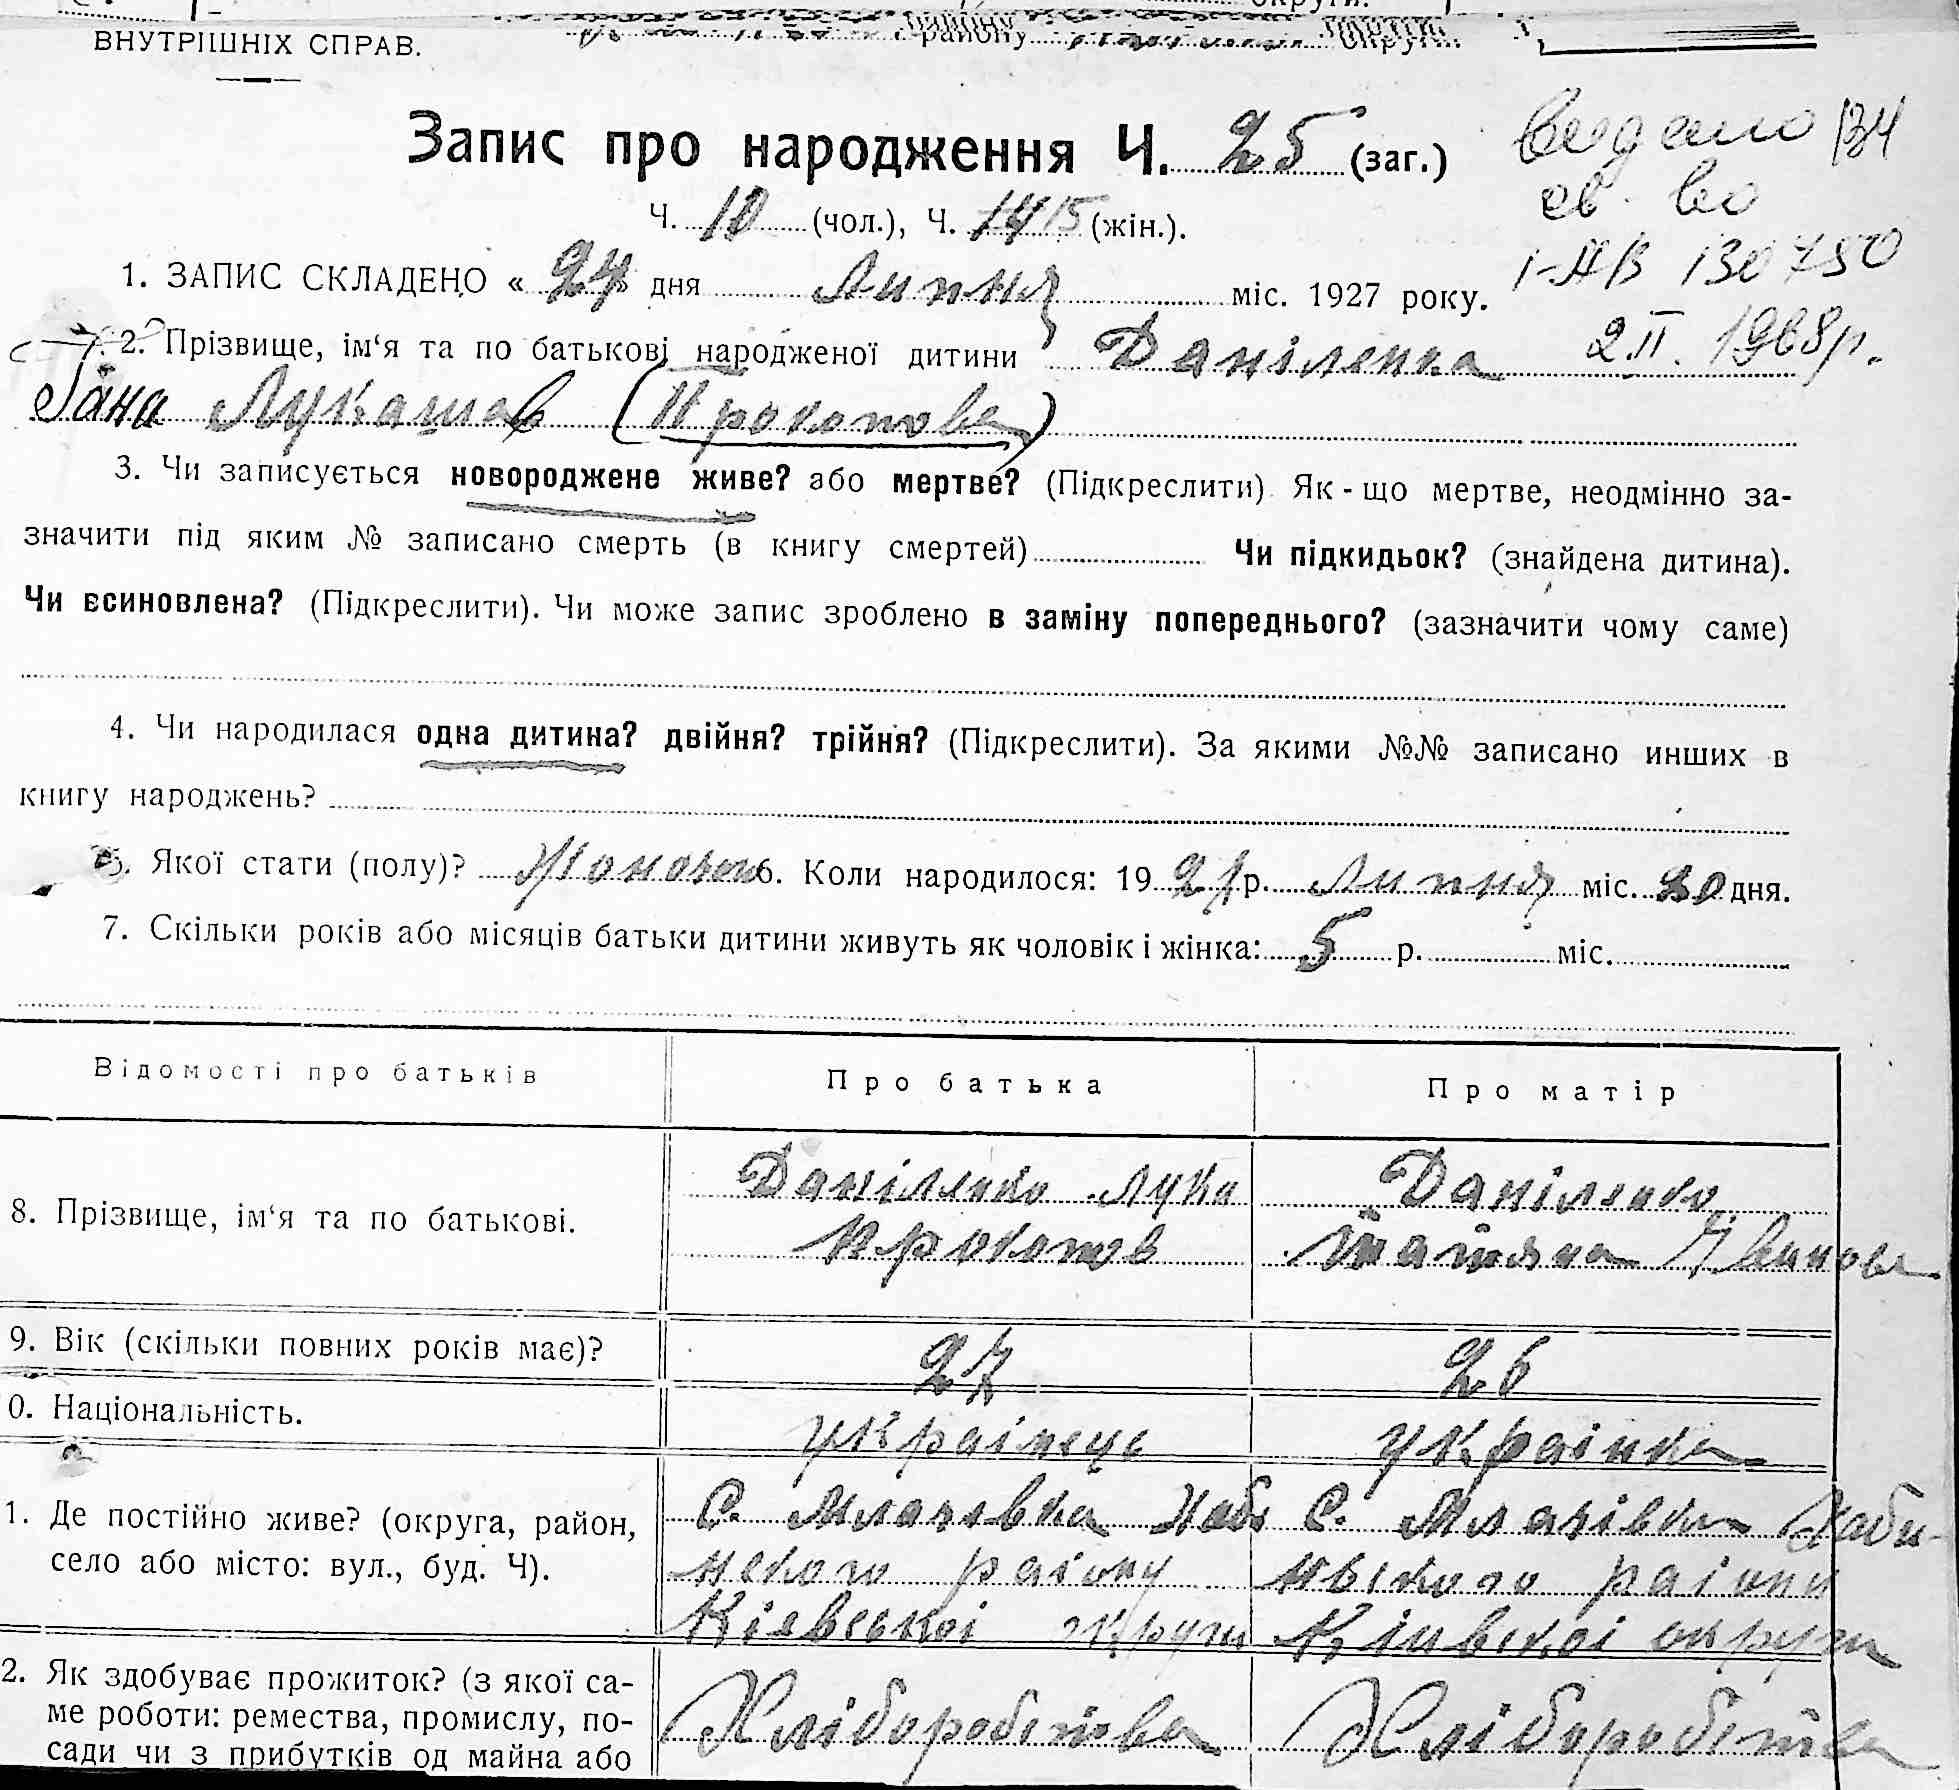 округи.
ВНУТРІШНІХ СПРАВ.
району округи
Запис про народження Ч. 25 (заг.)
Ч. 10 (чол.), Ч. 14 15 (жін.).
св. во
I-АВ 130750
2 II. 1968р.
1. ЗАПИС СКЛАДЕНО « 24 дня Липня міс. 1927 року.
2. Прізвище, ім‘я та по батькові народженої дитини Даніленка
Лукашов (Прокопова)
3. Чи записується новороджене живе? або мертве? (Підкреслити). Як - що мертве, неодмінно за-
значити під яким № записано смерть (в книгу смертей) Чи підкидьок? (знайдена дитина).
Чи всиновлена? (Підкреслити). Чи може запис зроблено в заміну попереднього? (зазначити чому саме)
4. Чи народилася одна дитина? двійня? трійня? (Підкреслити). За якими №№ записано инших в
книгу народжень?
5. Якої стати (полу)? 6. Коли народилося: 1927 р. Липня міс. 20 дня.
7. Скільки років або місяців батьки дитини живуть як чоловік і жінка: 5 р. міс.
Відомості про батьків Про батька Про матір
8. Прізвище, ім‘я та по батькові. Даніленко Лука Даніленко
Прокопов
9. Вік (скільки повних років має)? 27 26
0. Національність. українець українка
1. Де постійно живе? (округа, район, С. Млачовка С. Млачівка
село або місто: вул., буд. Ч). району
Кіевської округи округи
2. Як здобуває прожиток? (з якої са- Хліборобства Хліборобства
ме роботи: ремества, промислу, по-
сади чи з прибутків од майна або